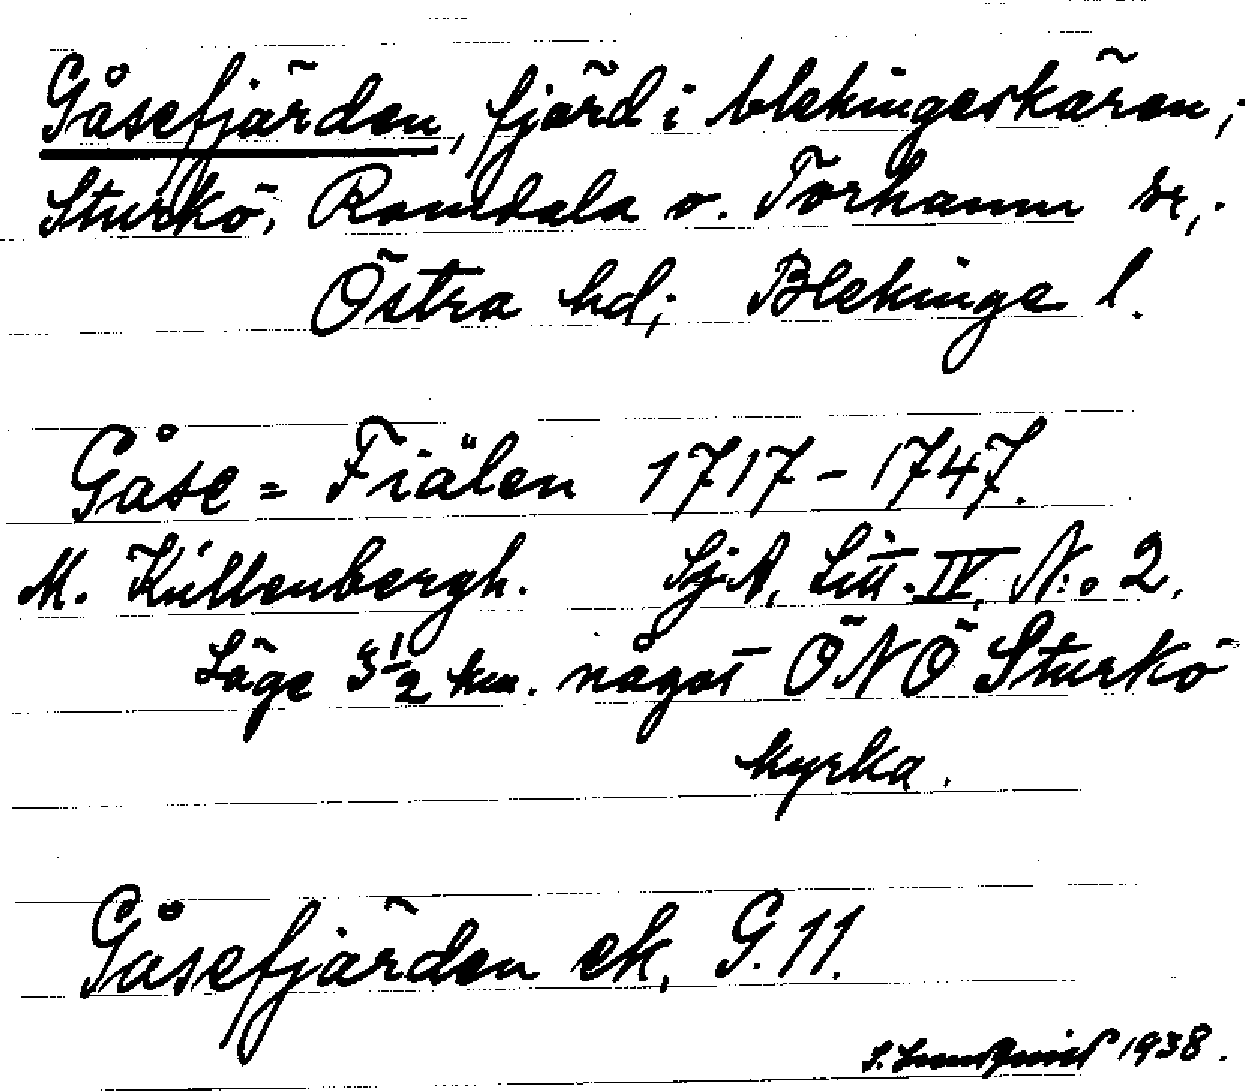 Gåsefjärden, fjärd i blekingeskären;
Sturkö, Ramdala o. Torhamn sn,.
Östra hd; Blekinge l.
Gåse = Fiälen 1717 - 1747.
M. Küllenbergh. SjA, Litt. IV, N:o 2.
Läge 3 1/2 km. något ÖNÖ Sturkö
kyrka.
Gåsefjärden ek. G. 11.
1938.